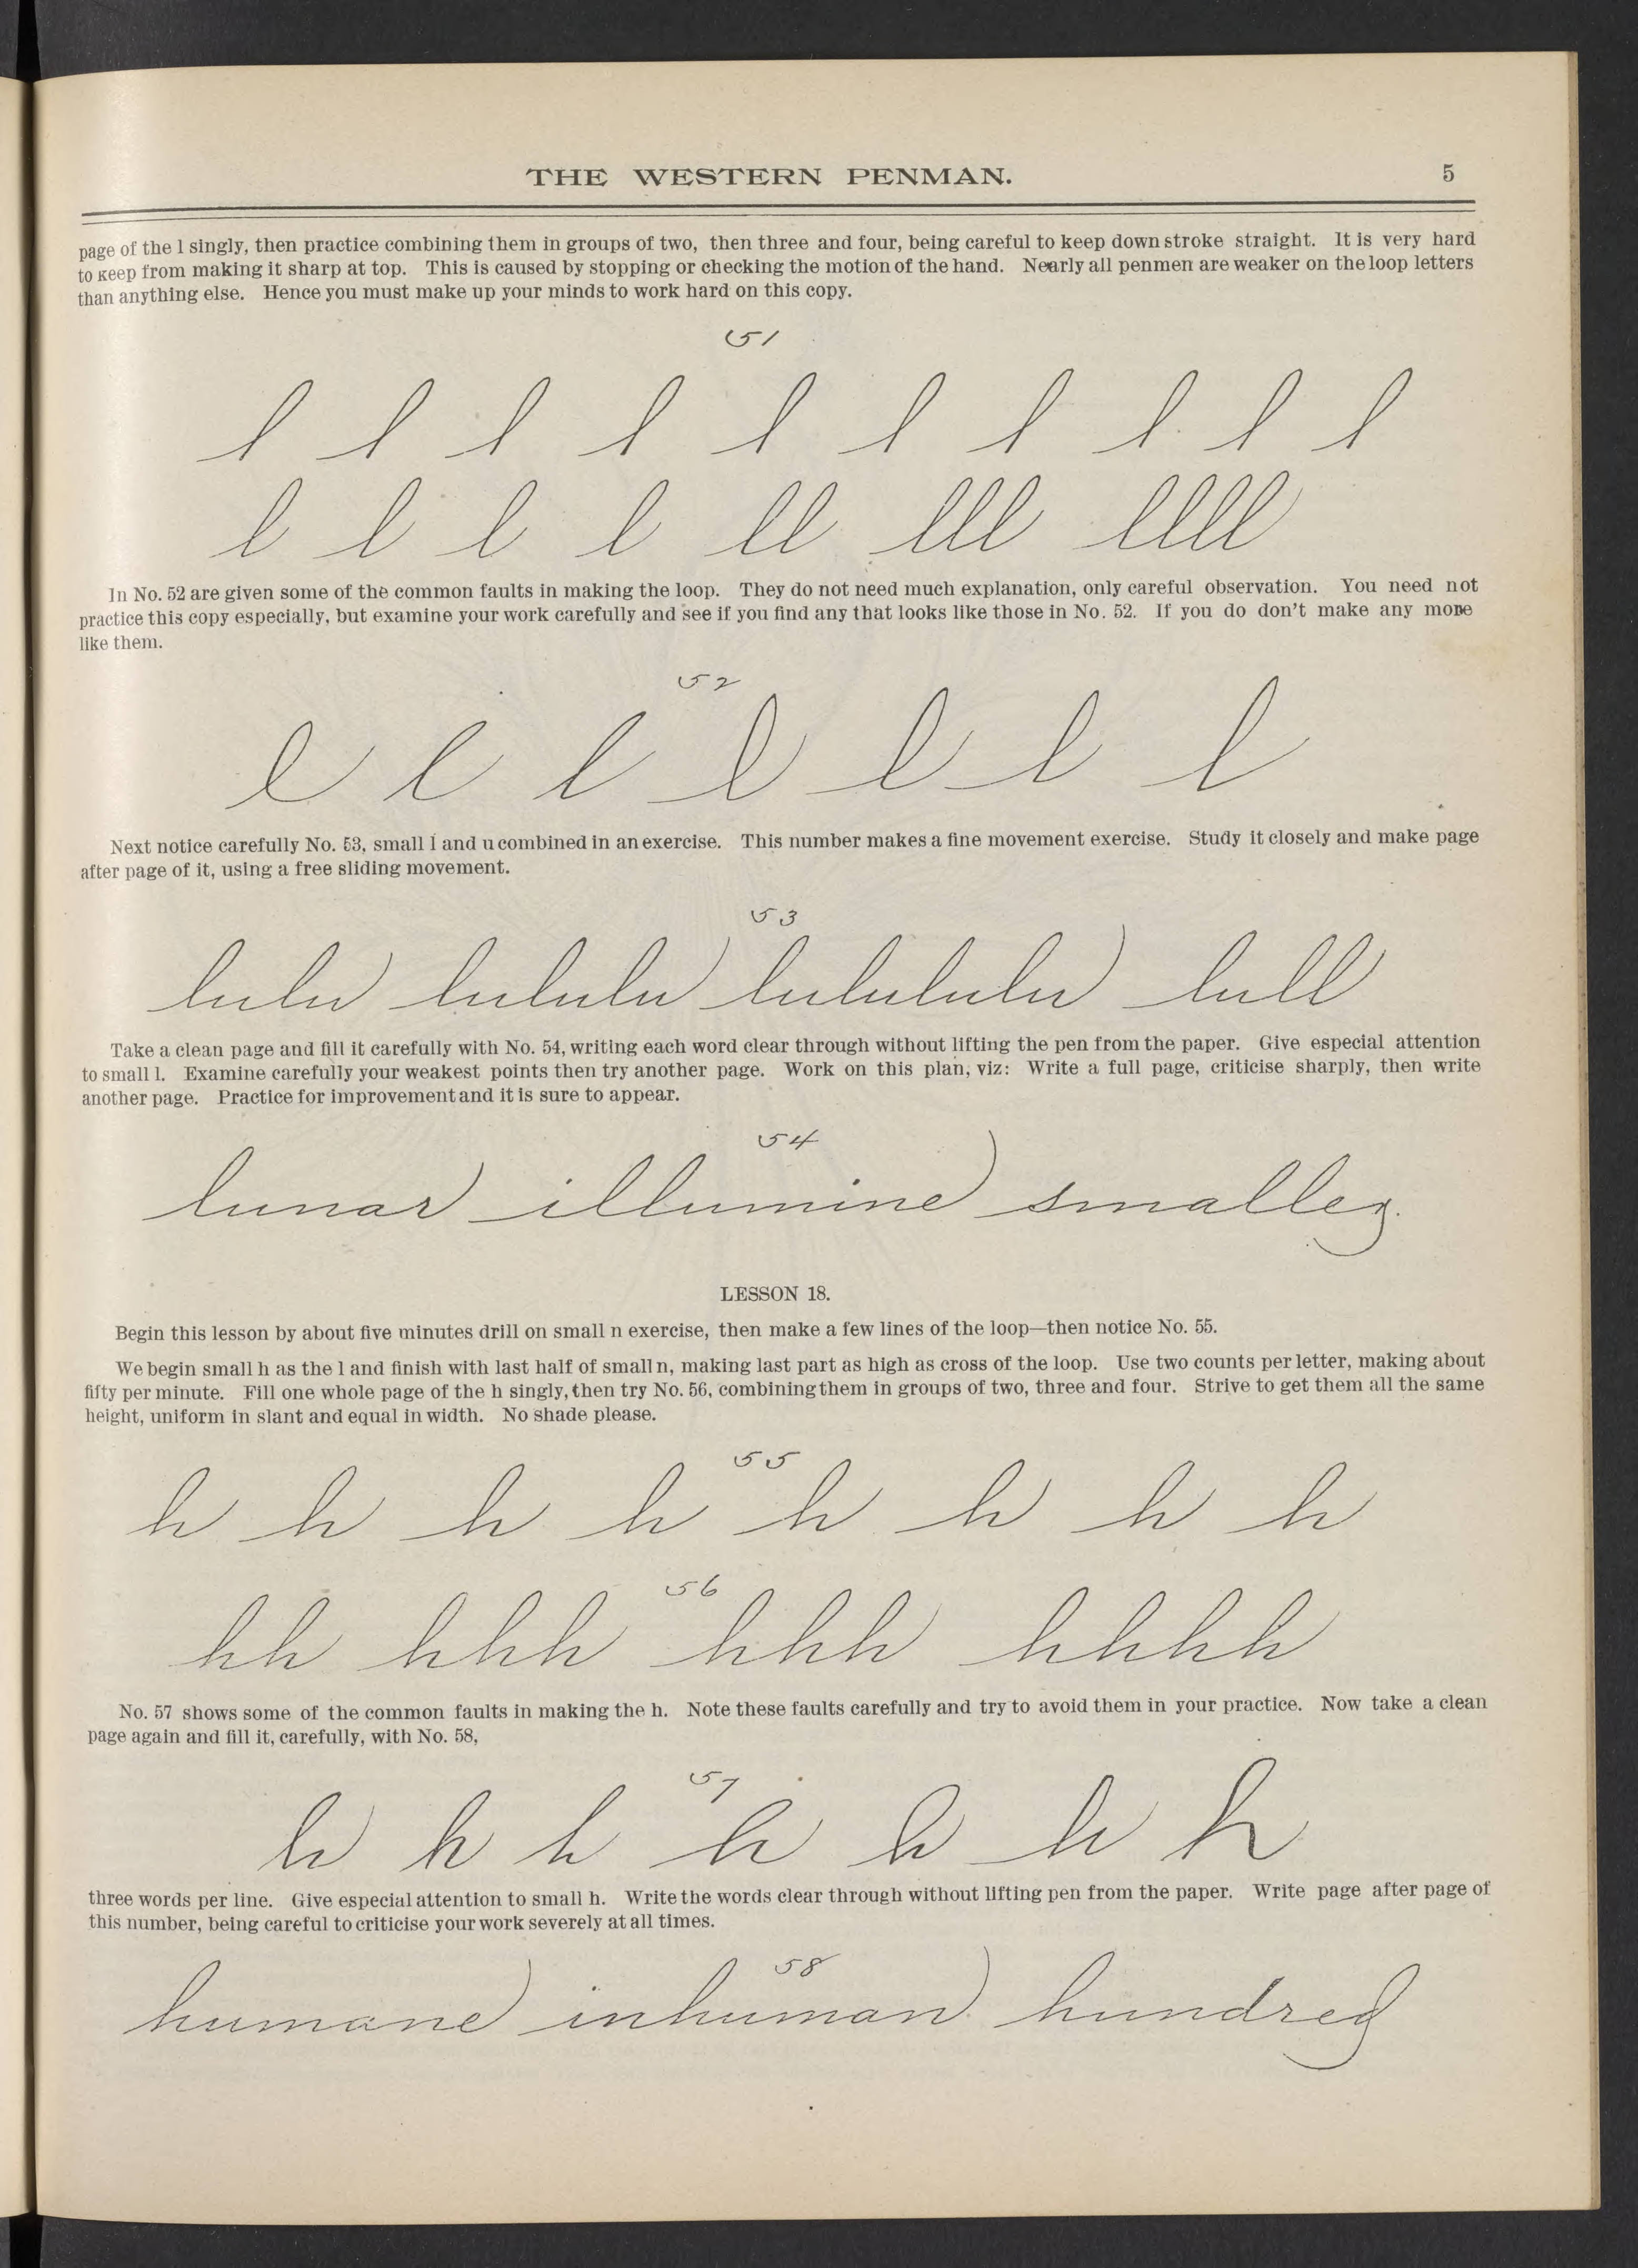 THE WESTERN PENMAN. 5
page of the l singly, then practice combining them in groups of two, then three and four, being careful to keep down stroke straight. It is very hard
to keep from making it sharp at top. This is caused by stopping or checking the motion of the hand. Nearly all penmen are weaker on the loop letters
than anything else. Hence you must make up your minds to work hard on this copy.
51
l l l l l l l l l l
l l l l ll lll llll
In No. 52 are given some of the common faults in making the loop. They do not need much explanation, only careful observation. You need not
practice this copy especially, but examine your work carefully and see if you find any that looks like those in No. 52. If you do don't make any more
like them.
52
l l l l l l l
Next notice carefully No. 53, small l and u combined in an exercise. This number makes a fine movement exercise. Study it closely and make page
after page of it, using a free sliding movement.
53
lulu lululu lulululu lull
Take a clean page and fill it carefully with No. 54, writing each word clear through without lifting the pen from the paper. Give especial attention
to small l. Examine carefully your weakest points then try another page. Work on this plan, viz: Write a full page, criticise sharply, then write
another page. Practice for improvement and it is sure to appear.
54
lunar illumine smaller.
LESSON 18.
Begin this lesson by about five minutes drill on small n exercise, then make a few lines of the loop—then notice No. 55.
We begin small h as the l and finish with last half of small n, making last part as high as cross of the loop. Use two counts per letter, making about
fifty per minute. Fill one whole page of the h singly, then try No. 56, combining them in groups of two, three and four. Strive to get them all the same
height, uniform in slant and equal in width. No shade please.
55
h h h h h h h h
56
hh hhh hhh hhhh
No. 57 shows some of the common faults in making the h. Note these faults carefully and try to avoid them in your practice. Now take a clean
page again and fill it, carefully, with No. 58,
57
h h h h h h h
three words per line. Give especial attention to small h. Write the words clear through without lifting pen from the paper. Write page after page of
this number, being careful to criticise your work severely at all times.
58
humane inhuman hundred